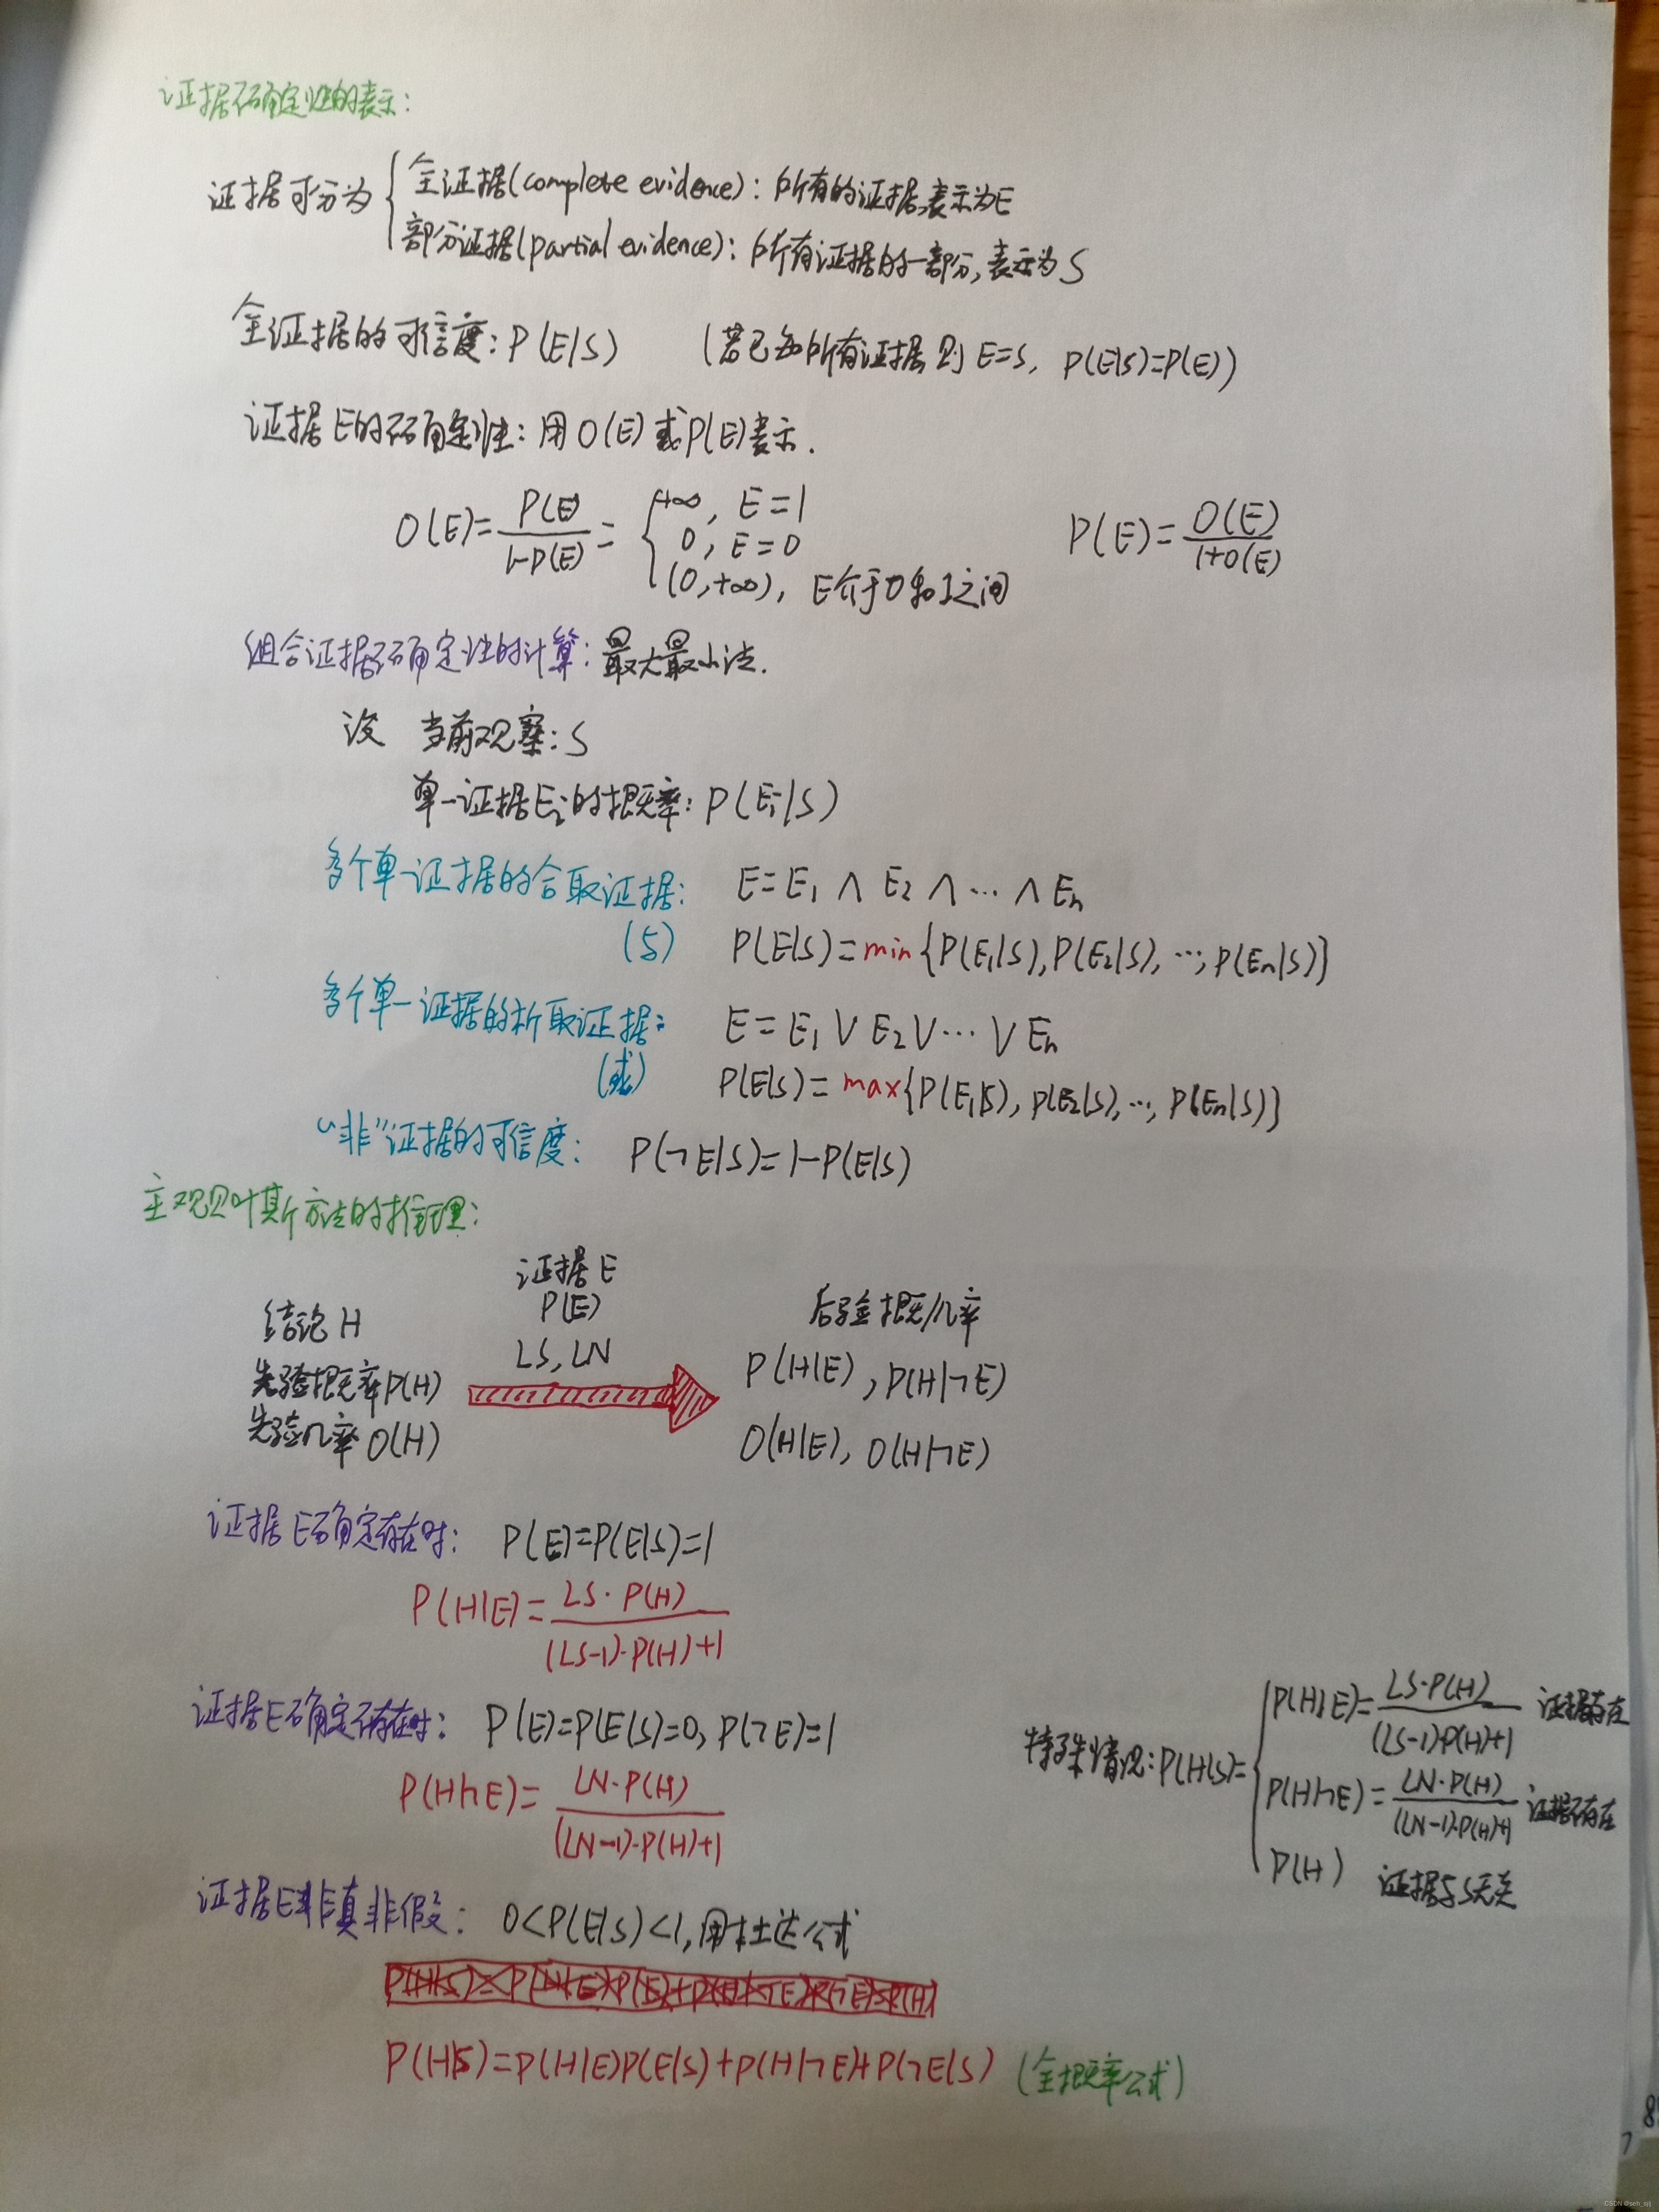 证据不确定性的表示:
证据可分为 { 全证据(complete evidence): 所有的证据,表示为E
部分证据(partial evidence): 所有证据的一部分,表示为S
全证据的可信度: P(E|S) (若已知所有证据,则E=S, P(E|S)=P(E))
证据E的不确定性: 用O(E)或P(E)表示.
O(E)=P(E)/(1-P(E))= { +∞, E=1
0, E=0
(0,+∞), E介于0和1之间
P(E)=O(E)/(1+O(E))
组合证据不确定性的计算: 最大最小法.
设 当前观察: S
单一证据Ei的概率: P(Ei|S)
多个单一证据的合取证据: E=E1 ∧ E2 ∧ … ∧ En
(与) P(E|S)=min{P(E1|S),P(E2|S), …, P(En|S)}
多个单一证据的析取证据: E=E1 ∨ E2 ∨ … ∨ En
(或) P(E|S)=max{P(E1|S), P(E2|S), …, P(En|S)}
“非”证据的可信度: P(¬E|S)=1-P(E|S)
主观贝叶斯方法的推理:
证据E
P(E)
LS, LN
结论H
先验概率P(H)
先验几率O(H)
后验概/几率
P(H|E), P(H|¬E)
O(H|E), O(H|¬E)
证据E确定存在时: P(E)=P(E|S)=1
P(H|E)=LS·P(H)/((LS-1)·P(H)+1)
证据E确定不存在时: P(E)=P(E|S)=0, P(¬E)=1
P(H|¬E)=LN·P(H)/((LN-1)·P(H)+1)
特殊情况: P(H|S)= { P(H|E)=LS·P(H)/((LS-1)·P(H)+1) 证据存在
P(H|¬E)=LN·P(H)/((LN-1)·P(H)+1) 证据不存在
P(H) 证据与S无关
证据E非真非假: 0<P(E|S)<1, 用杜达公式
P(H|S)=P(H|E)P(E|S)+P(H|¬E)+P(¬E|S) (全概率公式)